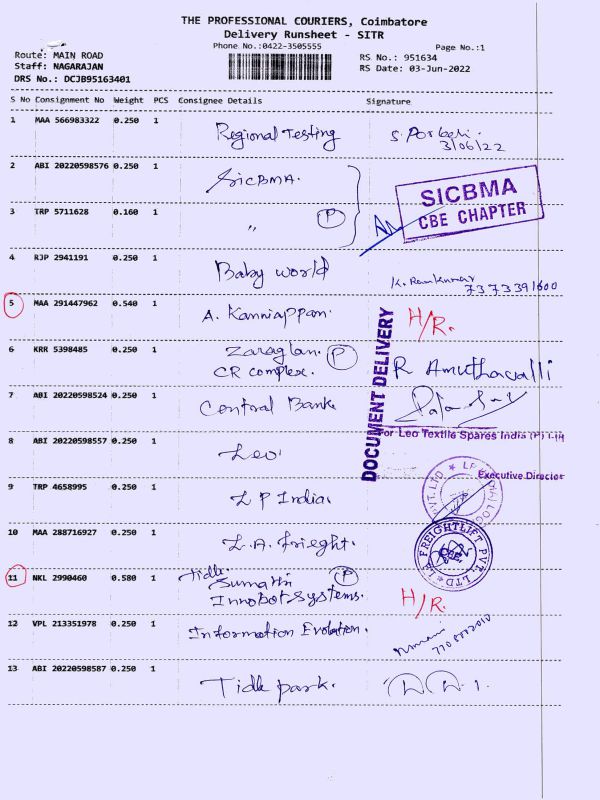 THE PROFESSIONAL COURIERS, Coimbatore
Delivery Runsheet - SITR
Phone No.:0422-3505555
Page No.:1
Route: MAIN ROAD
RS No.: 951634
Staff: NAGARAJAN
RS Date: 03-Jun-2022
DRS No.: DCJB95163401
S No Consignment No Weight PCS Consignee Details Signature
1 MAA 566983322 0.250 1 Regional Testing
3/06/22
2 ABI 20220598576 0.250 1 SICBMA.
SICBMA
CBE CHAPTER
3 TRP 5711628 0.160 1 " P
4 RJP 2941191 0.250 1 Baby world K. Ramkumar
7373391600
5 MAA 291447962 0.540 1 A. Kanniappan. H/R.
DOCUMENT DELIVERY
6 KRR 5398485 0.250 1 Zaraglan. P
CR complex. R Amuthavalli
7 ABI 20220598524 0.250 1 Central Bank
For Leo Textile Spares India (P) Ltd
8 ABI 20220598557 0.250 1 Leo
Executive Director
9 TRP 4658995 0.250 1 L P India.
10 MAA 288716927 0.250 1 L.A. frieght.
FREIGHTLIFT PVT. LTD
11 NKL 2990460 0.580 1 Tidle. P
Sumathi
Innobot Systems. H/R.
12 VPL 213351978 0.250 1 Information Evolution.
13 ABI 20220598587 0.250 1 Tidle park.